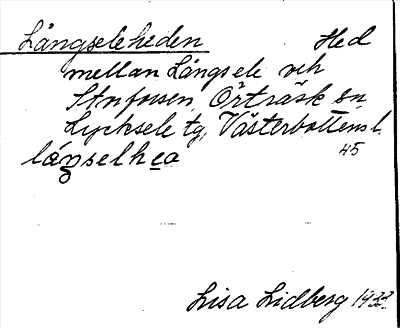 Långseleheden Hed
mellan Långsele och
Storforsen, Örträsk sn
Lycksele tg, Västerbottens l.
45
låŋselhea
Lisa Lidberg 1933.